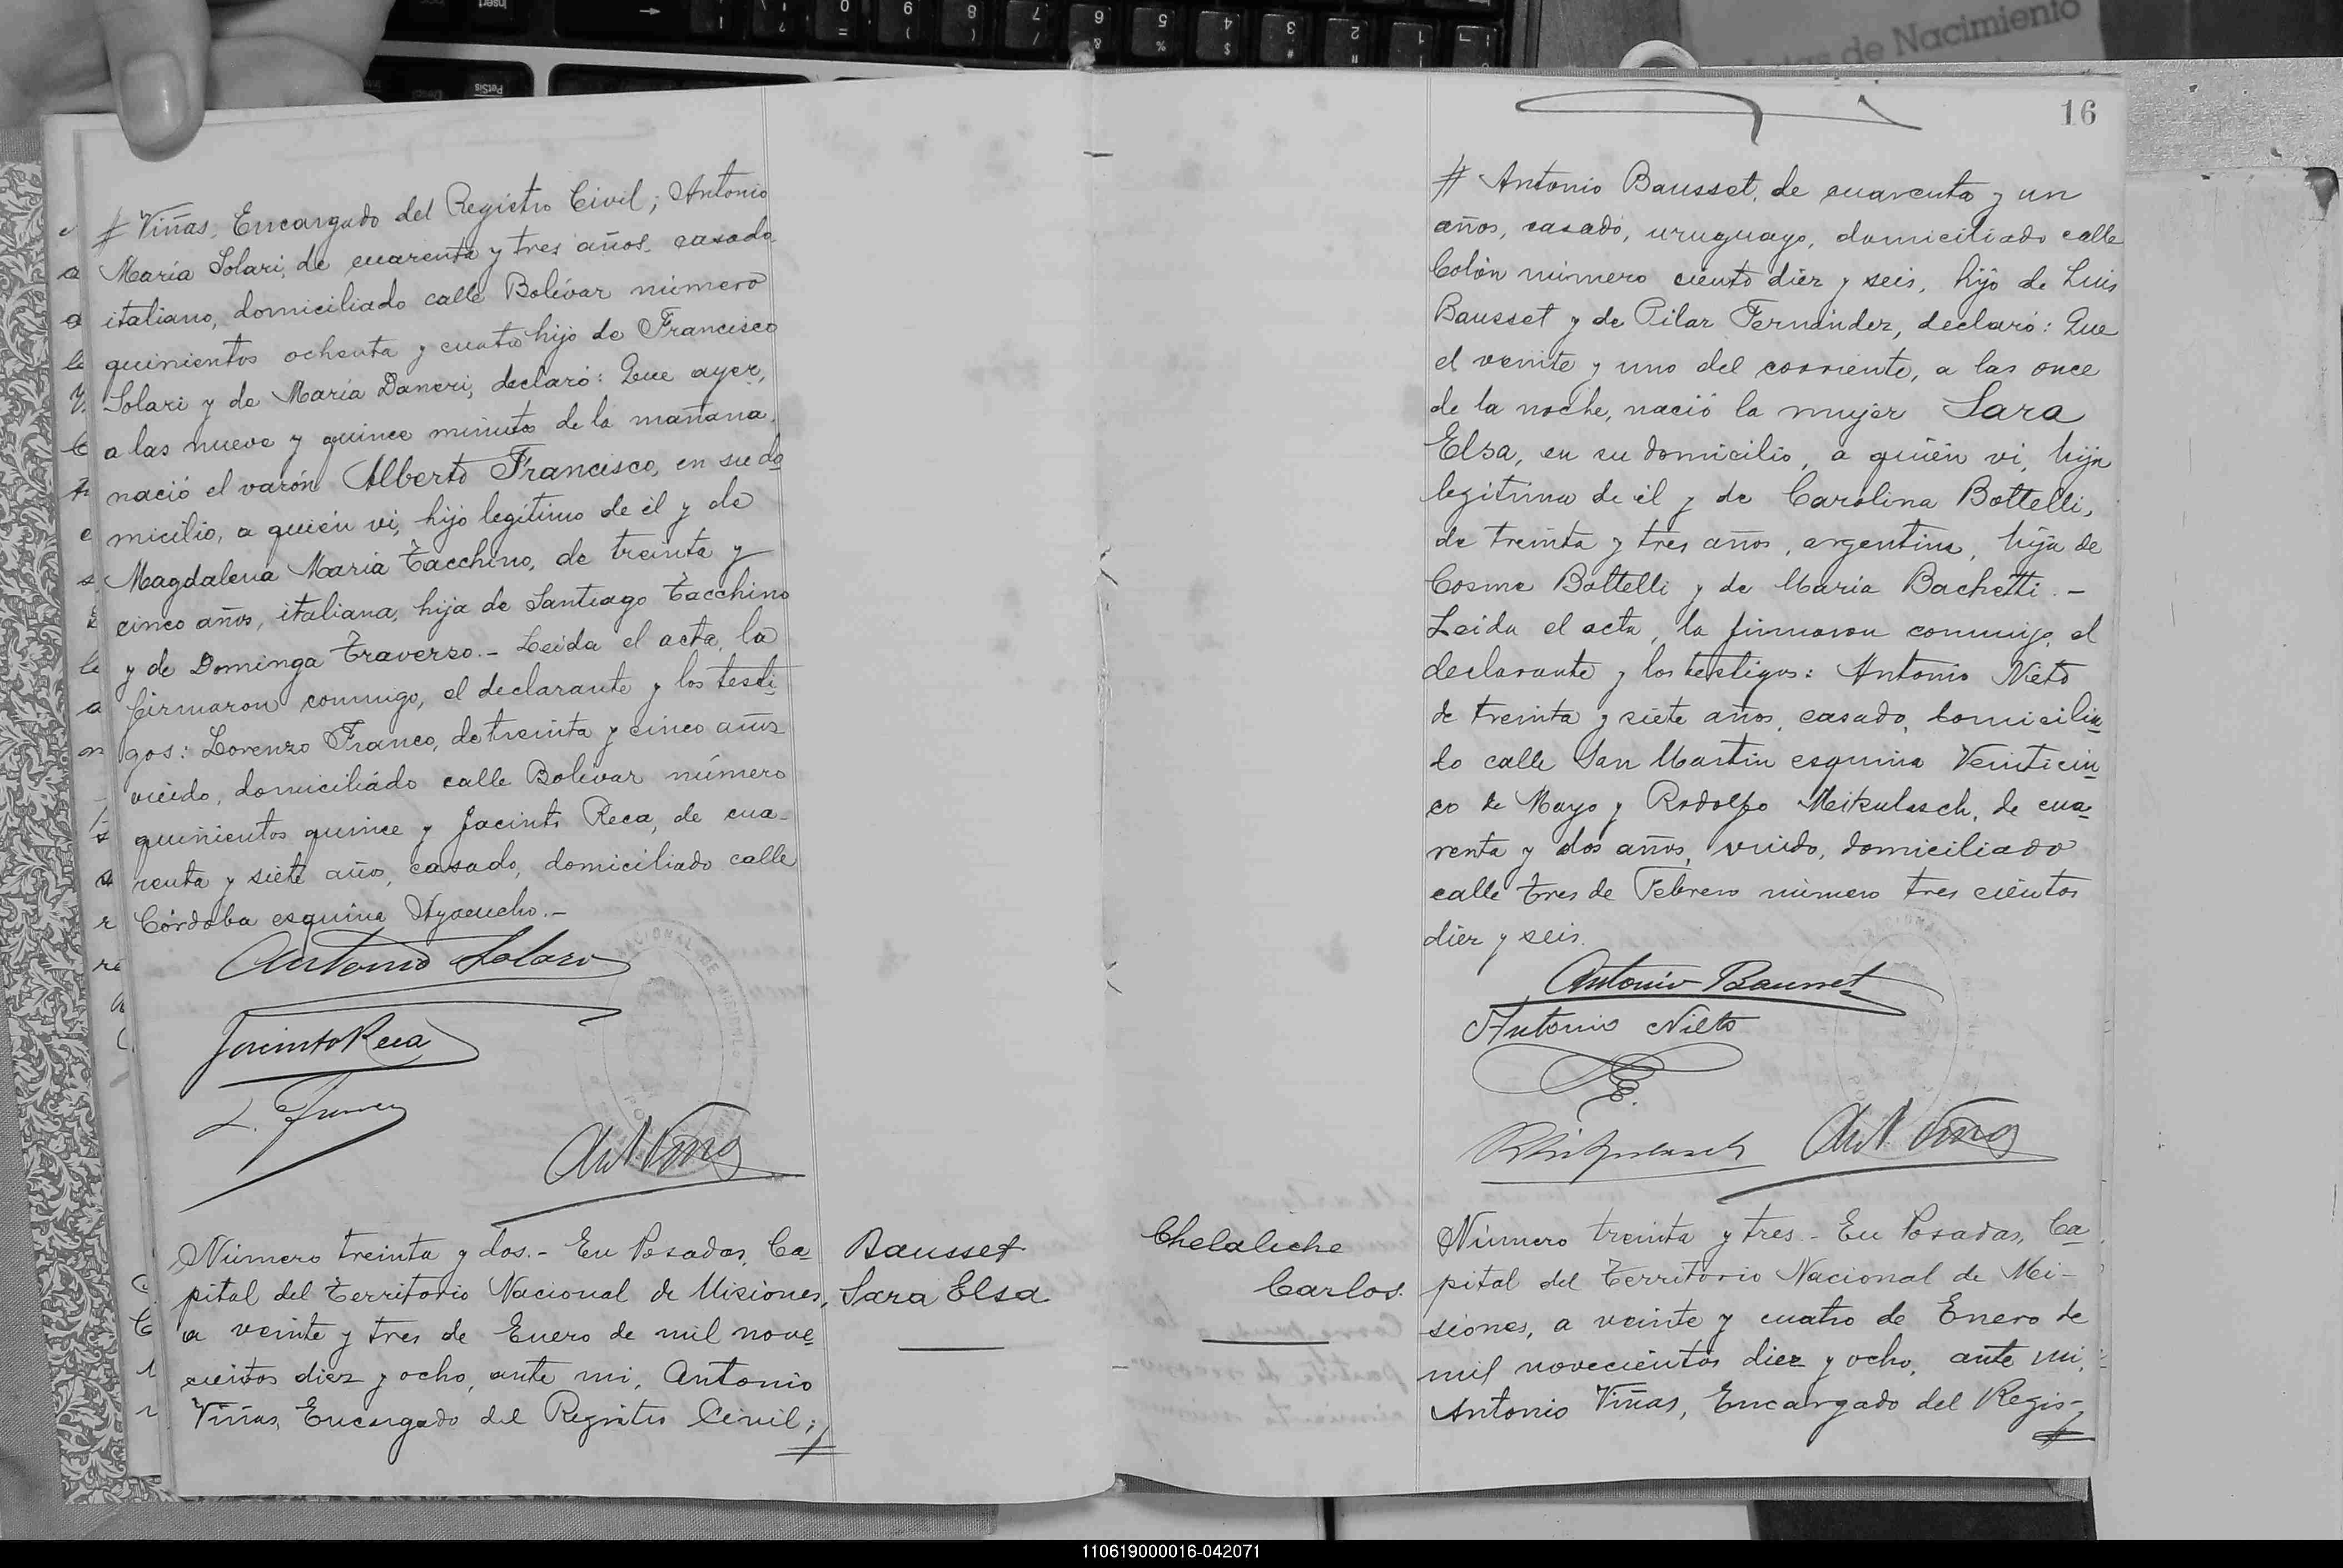 # Viñas, Encargado del Registro Civil; Antonio
María Solari, de cuarenta y tres años, casado
italiano, domiciliado calle Bolívar número
quinientos ochenta y cuatro hijo de Francisco
Solari y de María Daneri, declaró: Que ayer,
a las nueve y quince minutos de la mañana,
nació el varón Alberto Francisco, en su do
micilio, a quién vi, hijo legítimo de él y de
Magdalena María Tacchino, de treinta y
cinco años, italiana, hija de Santiago Tacchino
y de Dominga Traverso.- Leida el acta, la
firmaron conmigo, el declarante y los testi
gos: Lorenzo Franco, de treinta y cinco años
viudo, domiciliado calle Bolívar número
quinientos quince y Jacinto Reca, de cua-
renta y siete año, casado, domiciliado calle
Córdoba esquina Ayacucho.-
Antonio Solari
Jacinto Reca
L. Franco
Ant Viñas
Número treinta y dos.- En Posadas, Ca
pital del Territorio Nacional de Misiones,
a veinte y tres de Enero de mil nove
cientos diez y ocho, ante mi, Antonio
Viñas, Encargado del Registro Civil; #
Bausset
Sara Elsa
16
# Antonio Bausset, de cuarenta y un
años, casado, uruguayo, domiciliado calle
Colón número ciento diez y seis, hijo de Luis
Bausset y de Pilar Fernández, declaró: Que
el veinte y uno del corriente, a las once
de la noche, nació la mujer Sara
Elsa, en su domicilio, a quién vi, hija
legítima de él y de Carolina Bottelli,
de treinta y tres años, argentina, hija de
Cosme Bottelli y de María Bachetti.-
Leida el acta, la firmaron conmigo, el
declarante y los testigos: Antonio Nieto
de treinta y siete años, casado, domicilia
do calle San Martín esquina Veinticin
co de Mayo y Rodolfo Mikulasch, de cua
renta y dos años, viudo, domiciliado
calle Tres de Febrero número tres cientos
diez y seis.
Antonio Bausset
Antonio Nieto
R Mikulasch
Ant Viñas
Chelaliche
Carlos.
Número treinta y tres.- En Posadas, Ca
pital del Territorio Nacional de Mi-
siones, a veinte y cuatro de Enero de
mil novecientos diez y ocho, ante mi,
Antonio Viñas, Encargado del Regis- #
de Nacimiento
110619000016-042071